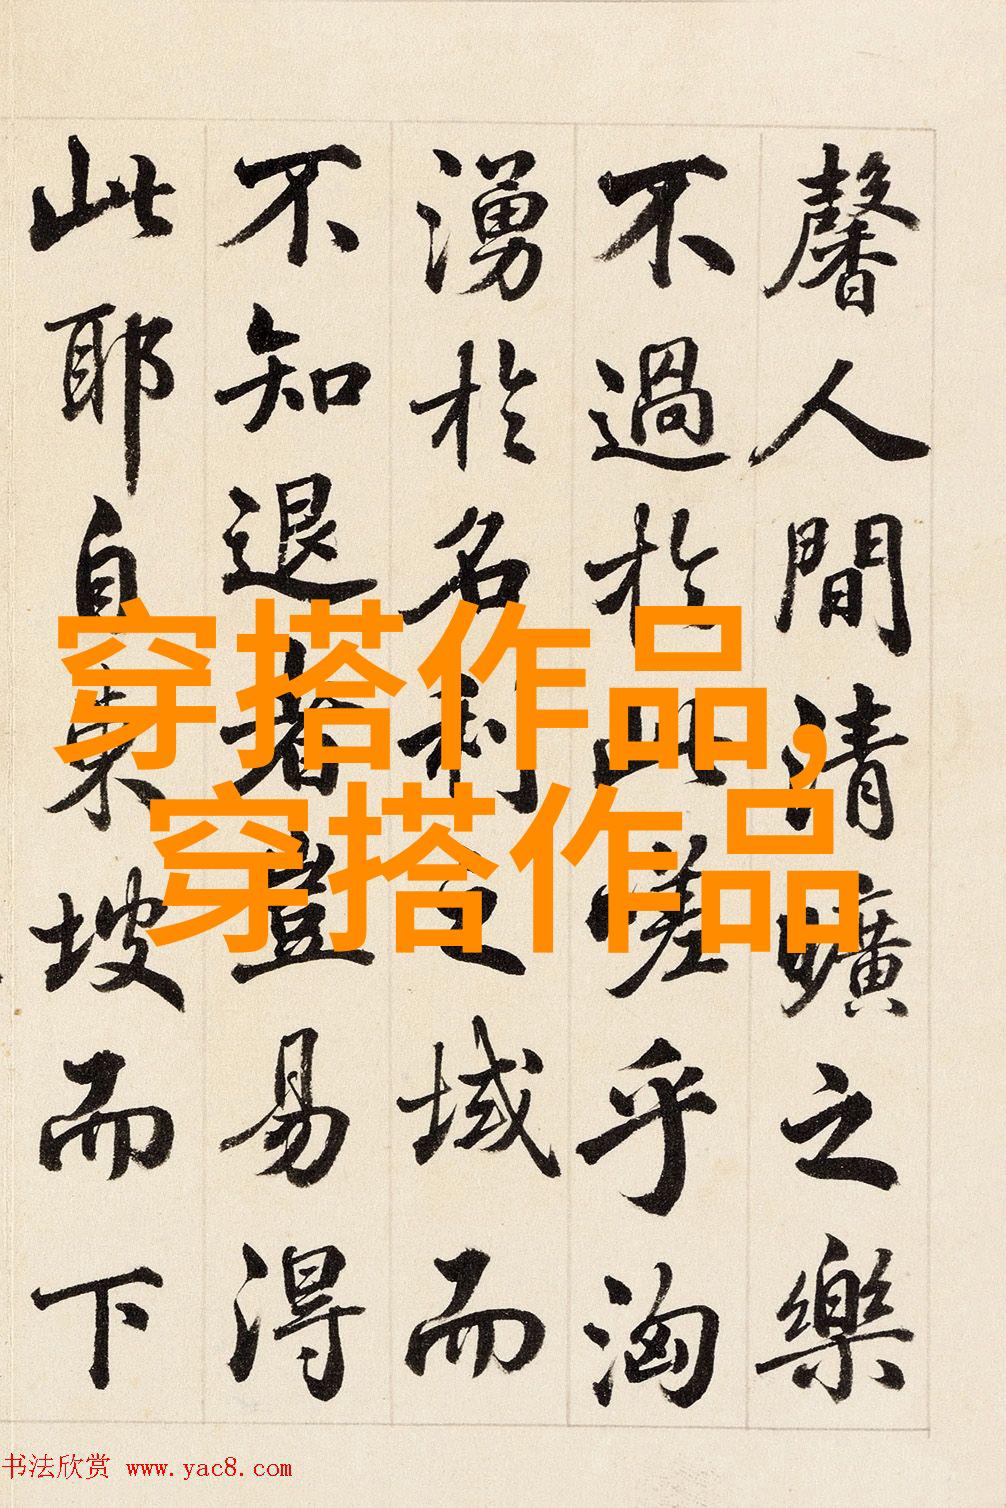 馨人間清曠之樂
不過於此嗟乎洶
湧於名利之域而
不知退者豈易得
此耶自東坡而下
穿搭作品,
穿搭作品
书法欣赏 www.yac8.com